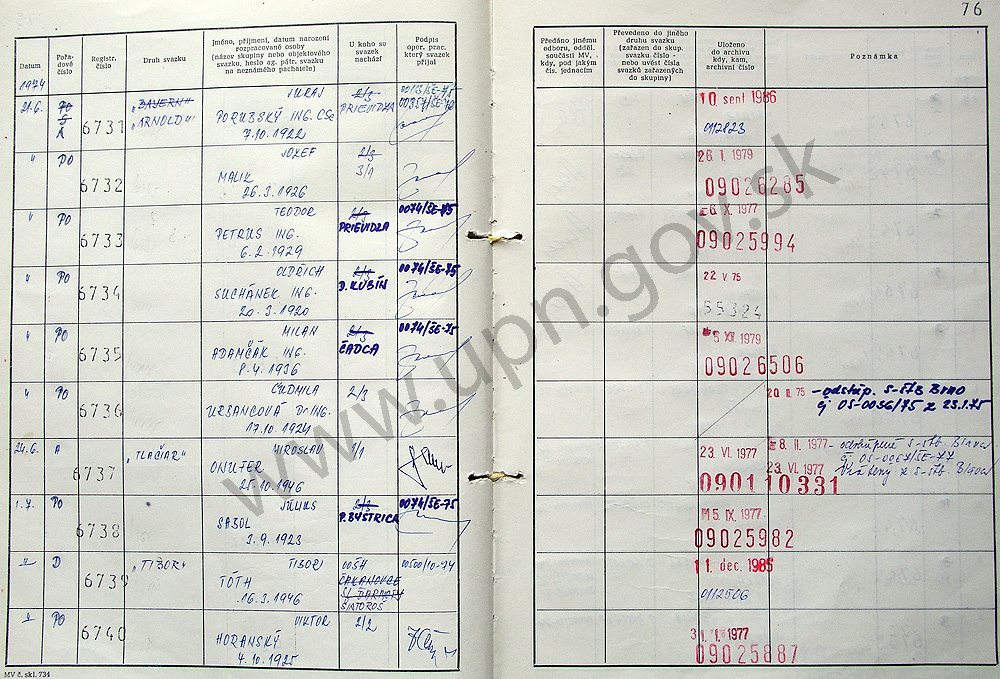 76
Datum
Pořa-
dové
číslo
Registr.
číslo
Druh svazku
Jméno, příjmení, datum narození
rozpracované osoby
(název skupiny nebo objektového
svazku, heslo ag. pátr. svazku
na neznámého pachatele)
U koho se
svazek
nachází
Podpis
oper. prac.
který svazek
přijal
Předáno jinému
odboru, odděl.
součásti MV,
kdy, pod jakým
čís. jednacím
Převedeno do jiného
druhu svazku
(zařazen do skup.
svazku číslo -
nebo uvést čísla
svazků zařazených
do skupiny)
Uloženo
do archivu
kdy, kam,
archivní číslo
Poznámka
1974
21.6.
PO
A
6731
„BAYERN"
„ARNOLD"
JURAJ
PORUBSKÝ ING. CSc
7.10.1922
2/3
PRIEVIDZA
10 sept 1986
0112823
"
PO
6732
JOZEF
MALIK
26.3.1926
2/3
3/1
26. I. 1979
09026285
"
PO
6733
TEODOR
PETRUS ING.
6.2.1929
2/3
PRIEVIDZA
0074/ŠE-75
-6. X. 1977
09025994
"
PO
6734
OLDŘICH
SUCHÁNEK ING.
20.3.1920
2/3
D.KUBÍN
0074/ŠE-75
22 V. 75
55324
"
PO
6735
MILAN
ADAMČÁK ING.
8.4.1936
2/3
ČADCA
0074/ŠE-75
5 XII 1979
09026506
"
PO
6736
ĽUDMILA
URBANCOVÁ Dr ING.
17.10.1924
2/3
20 II. 75
-odstúp. S-ŠTB Brno
čj 05-0036/75 z 23.1.75
24.6.
A
6737
„TLAČIAR"
MIROSLAV
ONUFER
25.10.1946
1/1
23. VI. 1977
8. II. 1977
- odstúpené S-ŠtB Blava
čj 05-0067/SE-77
23 VI. 1977
Vrátený z S-ŠtB Blava
090110331
1.7.
PO
6738
JÚLIUS
SABOL
3.9.1923
2/3
P.BYSTRICA
0074/ŠE-75
15. IX. 1977
09025982
"
D
6739
„TIBOR"
TIBOR
TÓTH
16.3.1946
OOŠH
ČAKANOVCE
ŠIATOROŠ
00500/10-74
11. dec. 1985
0112506
"
PO
6740
VIKTOR
HORANSKÝ
4.10.1925
2/2
31. 1. 1977
09025887
MV č. skl. 734
www.upn.gov.sk